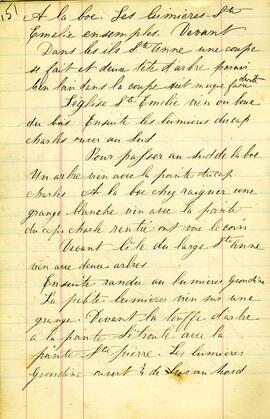 151
A la boe. Les lumieres Ste
Emelie ensemples. Venant
Dans les ils Ste Anne une coupe
se fait et deux tête d'arbre parais
bien dans la coupe sit marque
l'église Ste Emelie vien au boue
du bois Ensuite les lumieres du cap
charles ouvr au sud
Pour passer au sud de la boe
Un arbre vien avec la pointe du cap
charles A la boe chez raiguer une
grange blanche vien avec la pointe
du cap charle rentre ont voie le coin
Vivant l'ile du large Ste anne
vien avec deux arbres
Ensuite randu au lumieres Grondine
La petite lumieres vien sur une
grange. Devant la touffe d'arbre
a la pointe avec la
pointe Ste pierre. Les lumieres
Grondine ouvert au nord